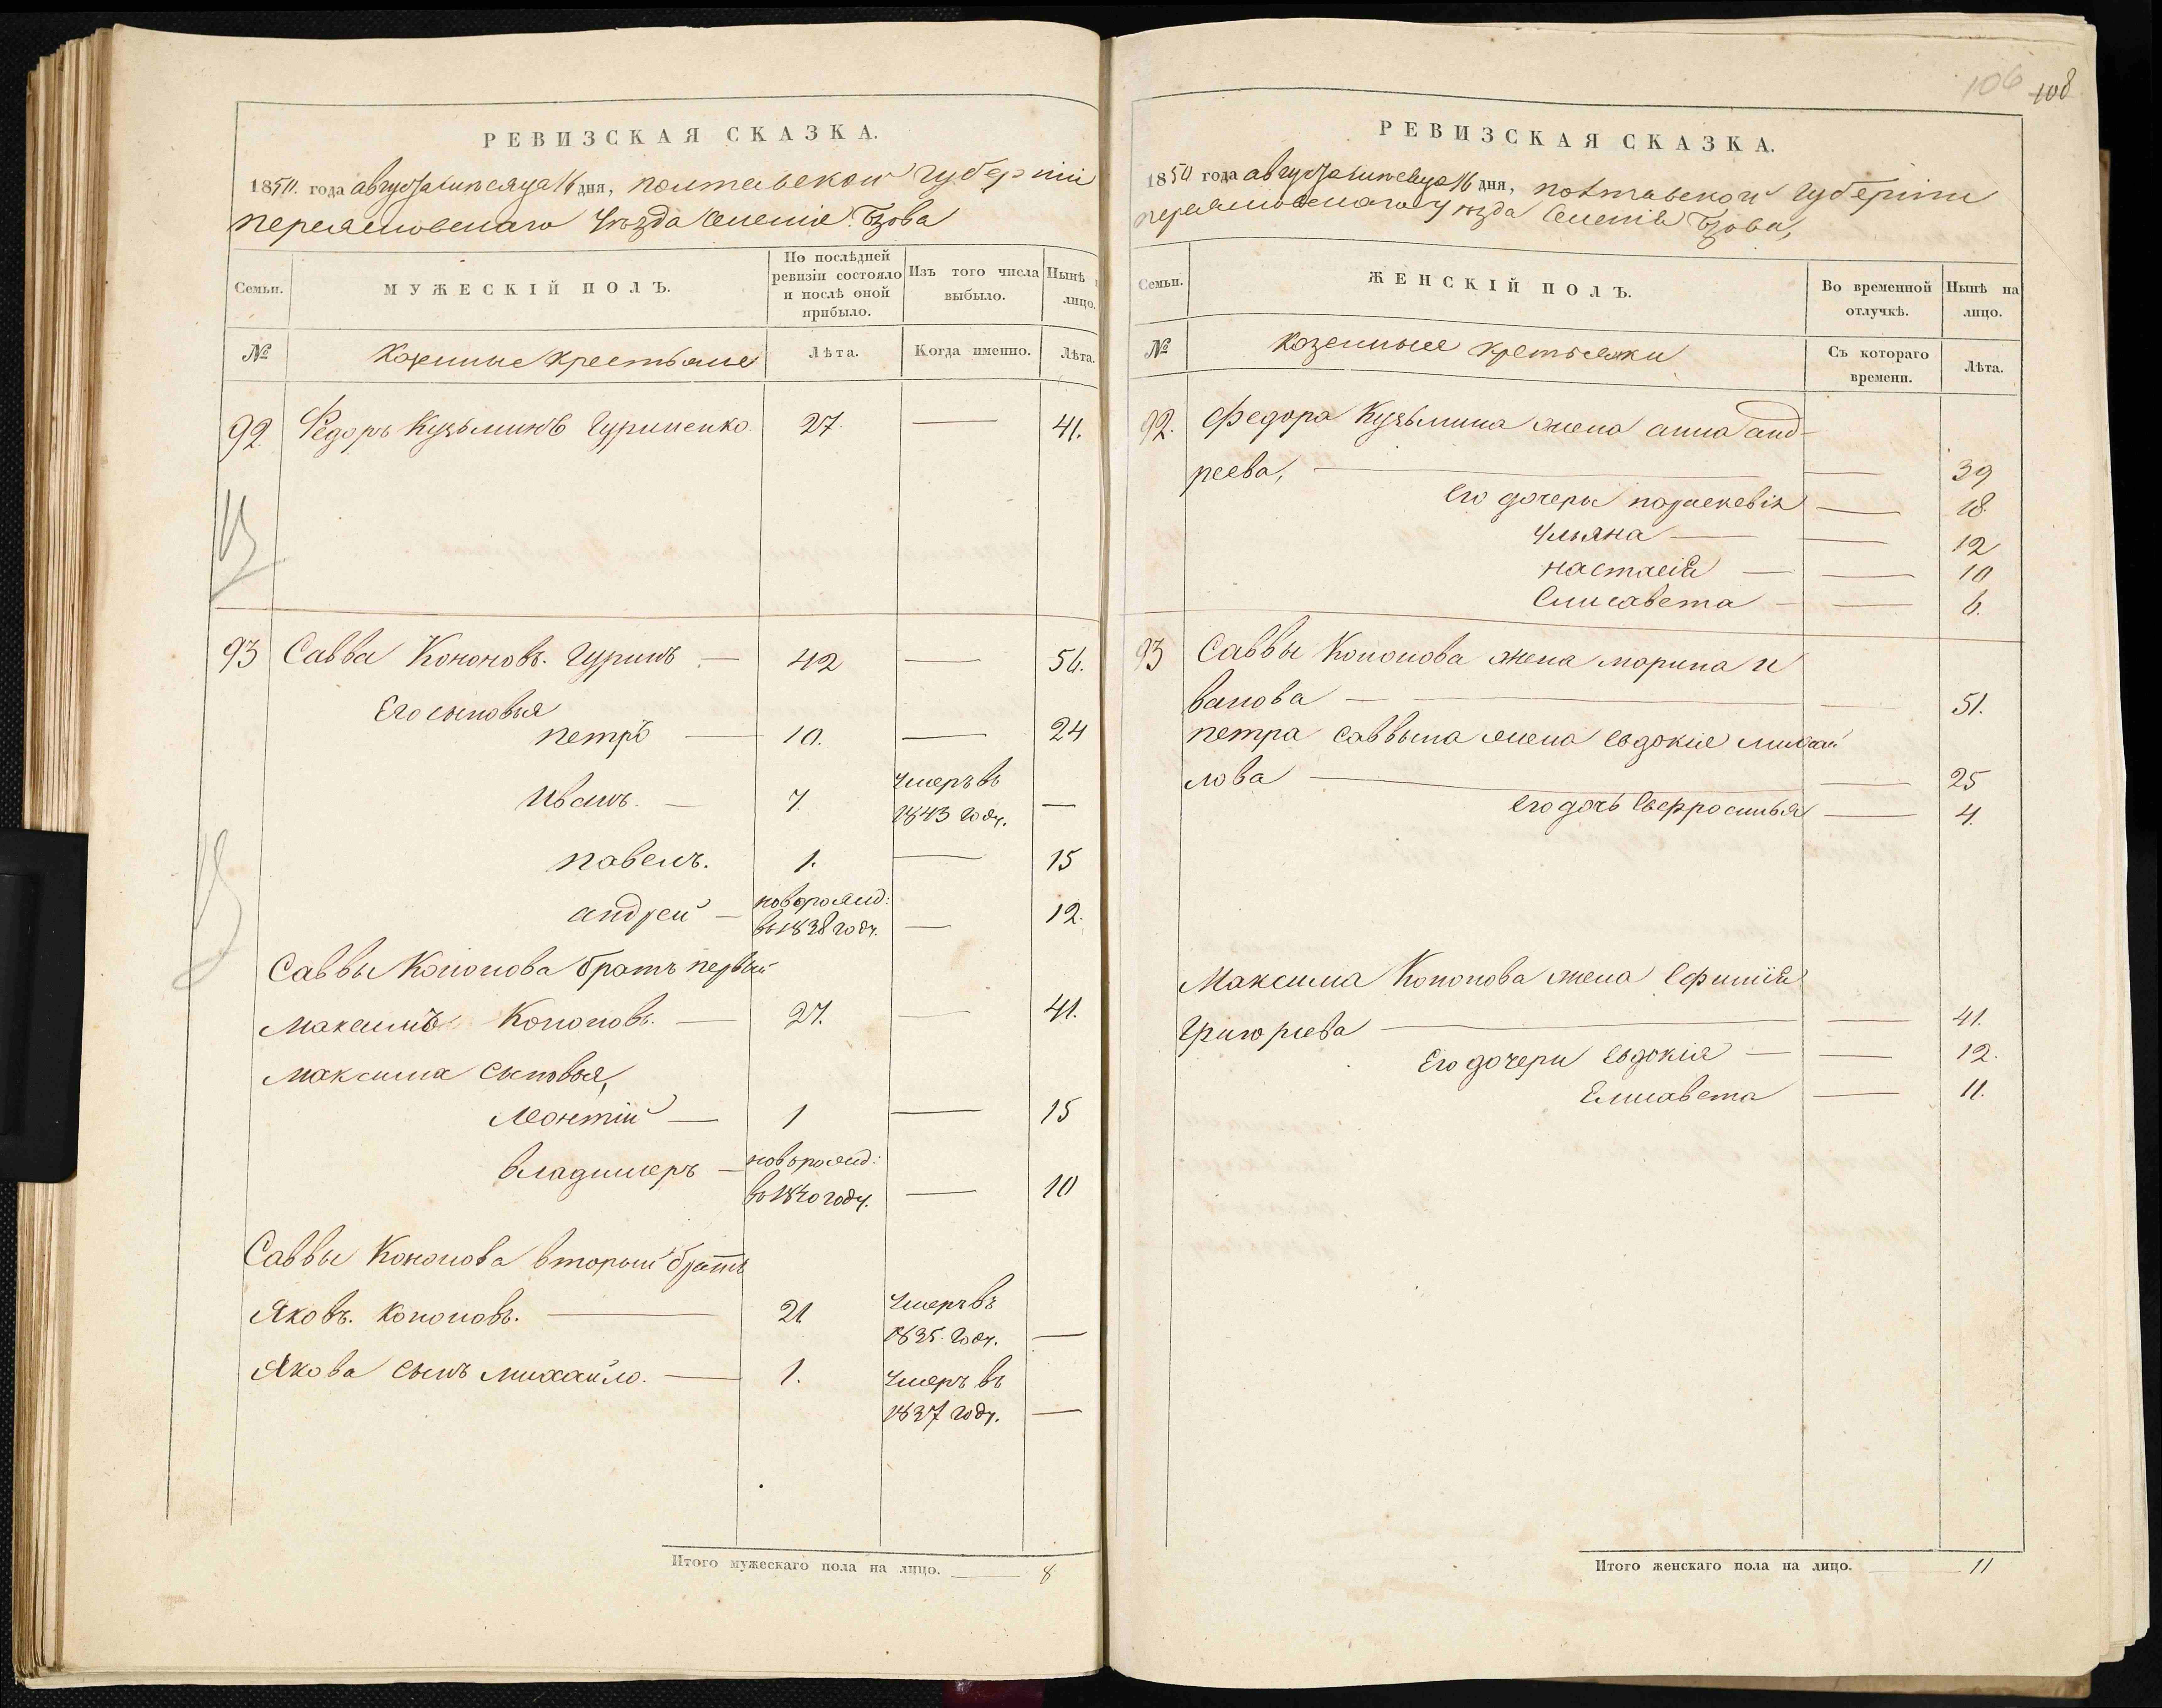 РЕВИЗСКАЯ СКАЗКА.
1850. года августа месяца 16 дня, полтавской губерніи
переясловского уѣзда селенія Бзова
Семьи.
МУЖЕСКІЙ ПОЛЪ.
По послѣдней ревизіи состояло и послѣ оной прибыло.
Изъ того числа выбыло.
Нынѣ лицо.
№
Козенные крестьяне
Лѣта.
Когда именно.
Лѣта.
92 Федоръ Кузьминъ Гуриненко 27. — 41.
93 Савва Кононовъ. Гуринъ — 42 — 56.
Его сыновья
петръ — 10. — 24
Иванъ. — 7. умеръ въ 1843 году. —
павелъ. 1. — 15
андрей — новорожд: въ 1838 году. — 12.
Саввы Кононова братъ первый
Максимъ Кононовъ. — 27. — 41.
Максима сыновья,
Леонтій — 1 — 15
Владимеръ — новорожд: въ 1840 году. — 10
Саввы Кононова вторый братъ
Яковъ. Кононовъ. — 21 умеръ въ 1835. году. —
Якова сынъ михайло. — 1. умеръ въ 1837 году. —
Итого мужескаго пола на лицо. — 8
106 108
РЕВИЗСКАЯ СКАЗКА.
1850 года августа месяца 16 дня, полтавской губерніи
переясловского уѣзда селенія Бзова,
Семьи.
ЖЕНСКІЙ ПОЛЪ.
Во временной отлучкѣ.
Нынѣ на лицо.
№
козенные крестьянки
Съ котораго времени.
Лѣта.
92. Федора Кузьмина жена анна анд-
реева, — — 39
его дочери параскевія — 18.
Ульяна — — 12
настасія — — 10
Елисавета — — 6.
93 Саввы Кононова жена марина и
ванова — — 51.
петра саввына жена евдокія михаи
лова — — 25
его дочь Евфросинья — 4.
Максима Кононова жена Ефимія
Григорьева — — 41.
Его дочери евдокія — — 12.
Елисавета — 11.
Итого женскаго пола на лицо. — 11